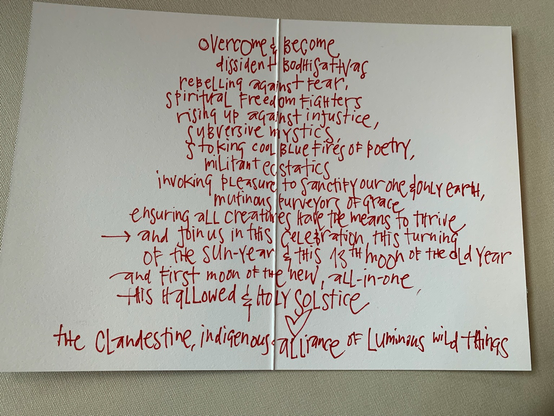 overcome & become,
dissident Bodhisattvas
rebelling against fear,
spiritual Freedom Fighters
rising up against injustice,
subversive mystics
stoking cool Blue Fires of poetry,
militant ecstatics
invoking pleasure to sanctify our one & only earth,
mutinous purveyors of grace
ensuring all creatures have the means to thrive
→ and join us in this celebration, this turning
of the sun-year & this 13th moon of the old year
and first moon of the new, all-in-one,
this Hallowed & Holy Solstice
the Clandestine, indigenous alliance of Luminous wild things